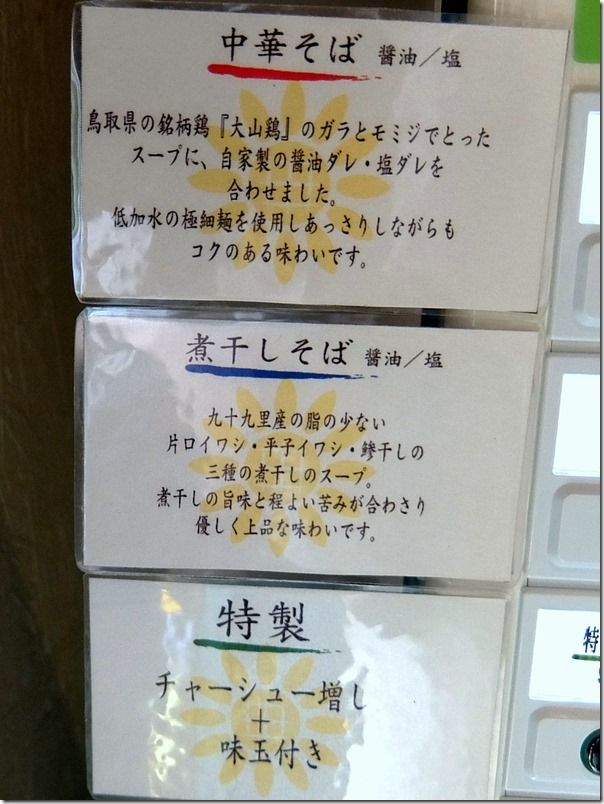 中華そば 醤油／塩
鳥取県の銘柄鶏『大山鶏』のガラとモミジでとった
スープに、自家製の醤油ダレ・塩ダレを
合わせました。
低加水の極細麺を使用しあっさりしながらも
コクのある味わいです。
煮干しそば 醤油／塩
九十九里産の脂の少ない
片口イワシ・平子イワシ・鯵干しの
三種の煮干しのスープ。
煮干しの旨味と程よい苦みが合わさり
優しく上品な味わいです。
特製
チャーシュー増し
＋
味玉付き
特